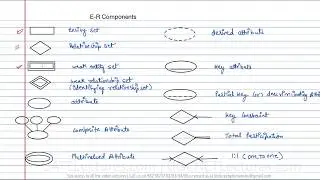 E-R Components
Entity set
Relationship set
weak entity set
weak relationship set
(Identifying relationship set)
attribute
Composite Attribute
Multivalued Attribute
derived attribute
key attribute
Partial key (or) discriminating Attri
key Constraint
Total Participation
1:1 (one to one)